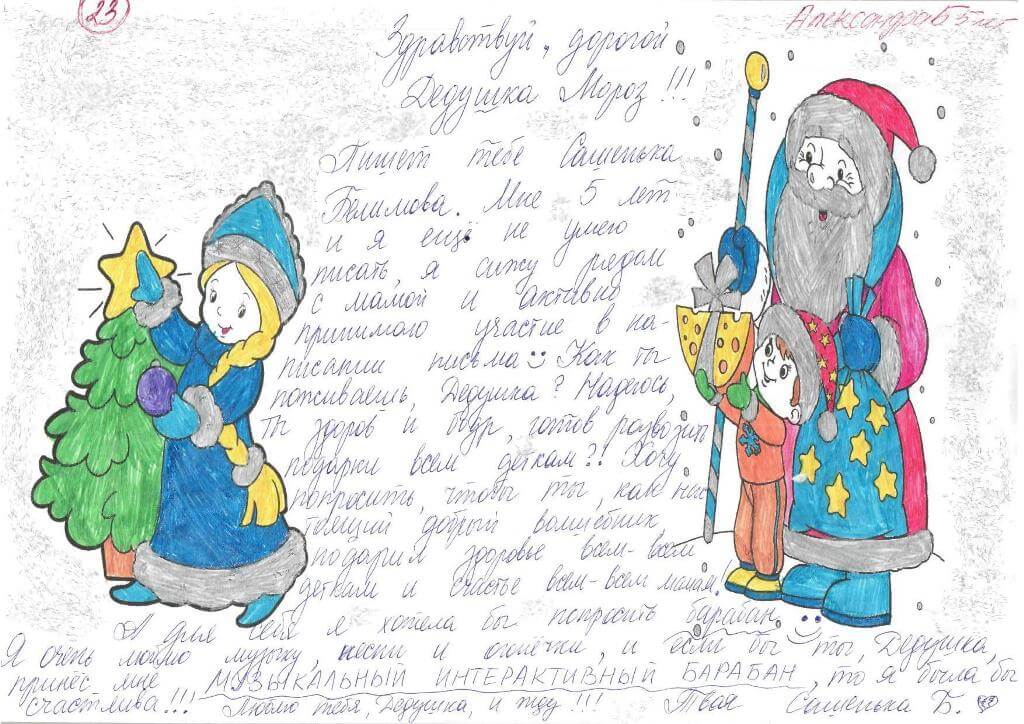 23
Александра Б 5 лет
Здравствуй, дорогой
Дедушка Мороз!!!
Пишет тебе Сашенька
Белимова. Мне 5 лет
и я ещё не умею
писать, я сижу рядом
с мамой и активно
принимаю участие в на-
писании письма Как ты
поживаешь, Дедушка? Надеюсь,
Ты здоров и бодр, готов развозить
подарки всем деткам?! Хочу
попросить, чтобы ты, как нас
тоящий добрый волшебник,
подарил здоровье всем-всем
деткам и счастье всем-всем мамам.
А для себя я хотела бы попросить барабан.
Я очень люблю музыку, песни и огонёчки, и если бы ты, Дедушка,
принёс мне МУЗЫКАЛЬНЫЙ ИНТЕРАКТИВНЫЙ БАРАБАН, то я была бы
счастлива!!! Люблю тебя, Дедушка, и жду!!! Твоя Сашенька Б.